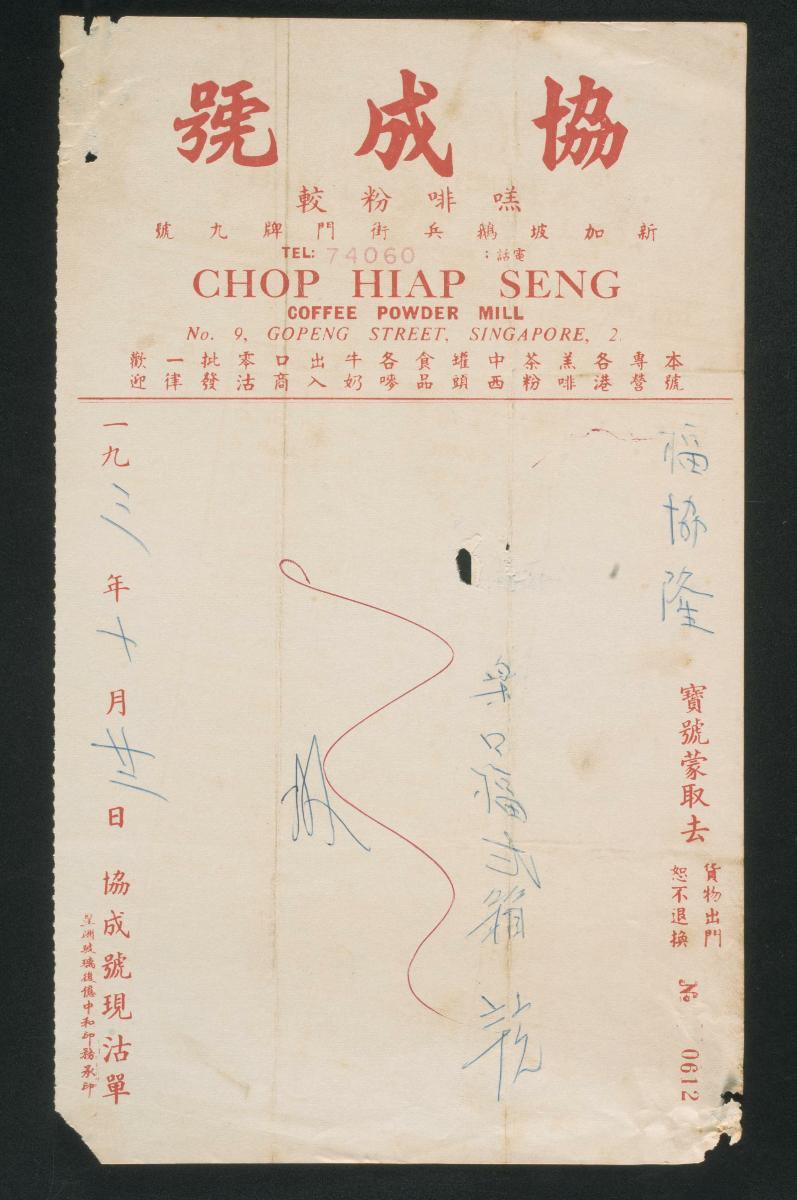 協成號
嘿啡粉較
新加坡鵝兵街門牌九號
TEL: 74060 電話:
CHOP HIAP SENG
COFFEE POWDER MILL
No. 9, GOPENG STREET, SINGAPORE, 2.
本號專營各港羔啡茶粉中西罐頭食品各嘜牛奶出入口商零沽批發一律歡迎
福協隆
寶號蒙取去
貨物出門
恕不退換
No 0612
箱
一九三年十月廿二日
協成號現沽單
中和印務承印